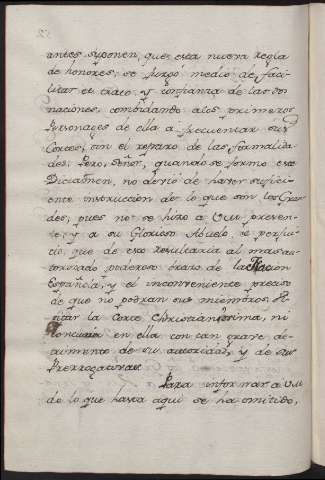 antes suponen, que esta nueva Regla
de honores, se juzgó medio de faci-
litar el trato, y confianza de las dos
naciones, combidando a los primeros
Personages de ella a frecuentar sus
Cortes, sin el reparo de las formalida-
des; Pero, Señor, quando se formó este
Dictamen, no devió de haver sufici-
ente instruccion de lo que son los Gran-
des, pues no se hizo a V.M. presen-
te, y a su Glorioso Abuelo, el perjui-
cio, que de esto resultaria al mas au-
torizado poderoso brazo de la Nacion
Española, y el inconveniente preciso
de que no podran sus miembros ha-
vitar la Corte Christianissima, ni
concurrir en ella con tan grave de-
trimento de su autoridad, y de sus
Prerrogativas.
Para informar a V.M.
de lo que hasta aqui se ha omitido,